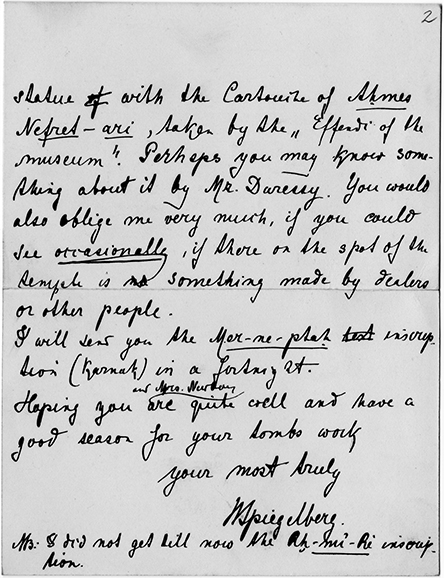 2
statue of with the Cartouche of Ahmes
Nefret-ari, taken by the „Effendi of the
museum". Perhaps you may know some-
thing about it by Mr. Daressy. You would
also oblige me very much, if you could
see occasionally, if there on the spot of the
temple is something made by dealers
or other people.
I will send you the Mer-ne-ptah text inscrip-
tion (Karnak) in a fortnight.
and Mrs. Newberry
Hoping you are quite well and have a
good season for your tombs work
your most truly
WSpiegelberg.
NB: I did not get till now the Rh-mi-Re inscrip-
tion.